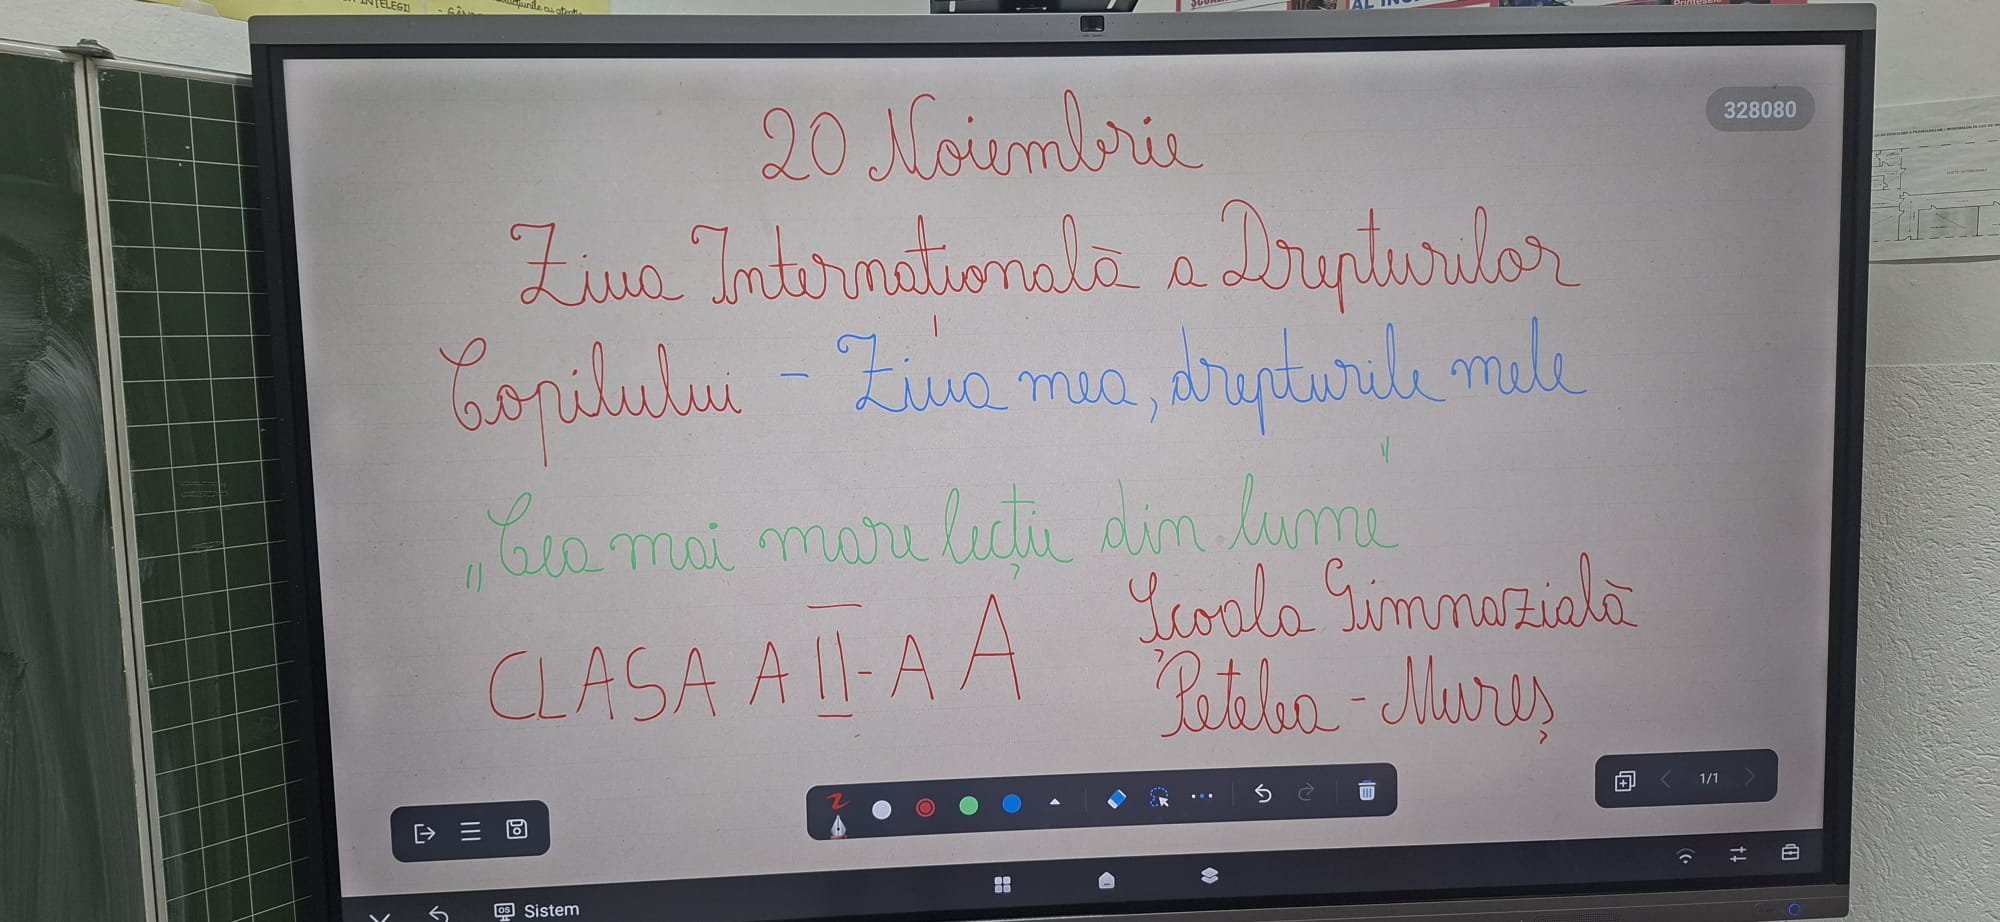 INȚELEGI
328080
20 Noiembrie
Ziua Internațională a Drepturilor
Copilului - Ziua mea, drepturile mele
„Cea mai mare lecție din lume"
CLASA A II-A A
Școala Gimnazială
Petelea - Mureș
1/1
OS Sistem